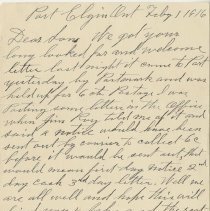 Port Elgin Ont Feby 1 1916
Dear Son, We got your
long looked for and welcome
letter last night it came to Port
yesterday by Parlmark and was
held up for 6 cts Postage I was
Posting some letters in the office
when Jim Key told me of it and
said a notice would have been
sent out by carrier to collect 6c
before it would be sent out, that
would mean first day notice 2nd
day cash 3rd day letter. Well we
are all well and hope this will